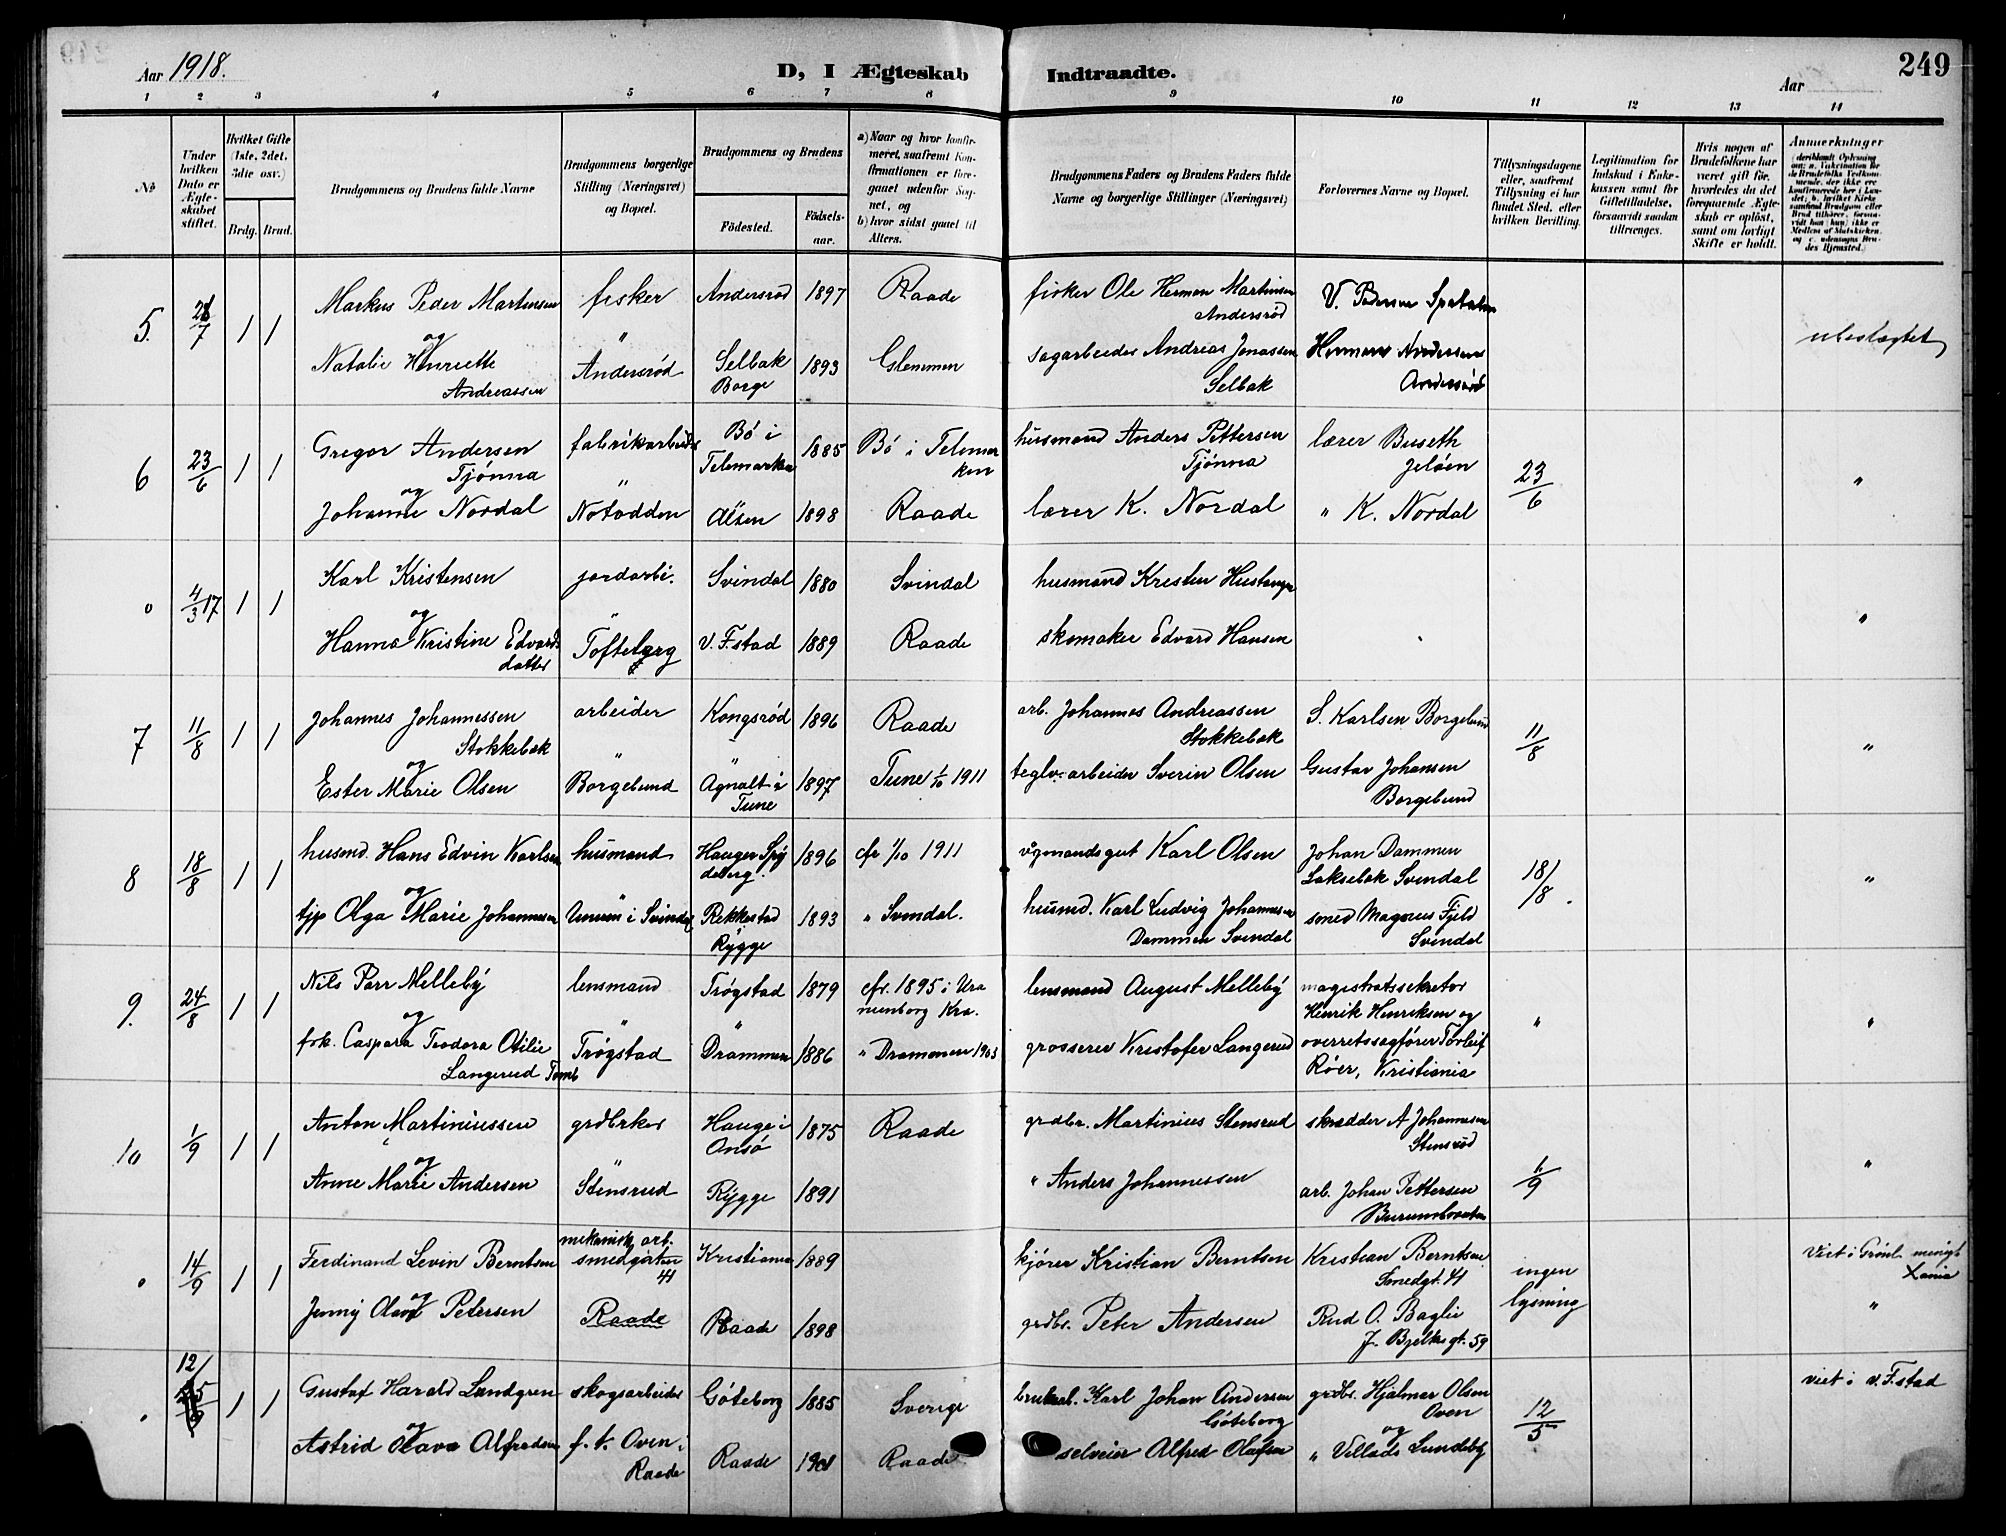 249
Aar 1918.
D, I Ægteskab Indtraadte.
Aar
1 2 3 4 5 6 7 8 9 10 11 12 13 14
No
Under hvilken Dato er Ægteskabet stiftet.
Hvilket Gifte (1ste, 2det, 3die osv.)
Brdg. Brud.
Brudgommens og Brudens fulde Navne
Brudgommens borgerlige Stilling (Næringsvei) og Bopæl.
Brudgommens og Brudens
Födested.
Födsels-aar.
a) Naar og hvor konfirmeret, saafremt Konfirmationen er foregaaet udenfor Sognet, og
b) hvor sidst gaaet til Alters.
Brudgommens Faders og Brudens Faders fulde Navne og borgerlige Stillinger (Næringsvei)
Forlovernes Navne og Bopæl.
Tillysningsdagene eller, saafremt Tillysning ei har fundet Sted, efter hvilken Bevilling.
Legitimation for Indskud i Enkekassen samt for Giftetilladelse, forsaavidt saadan tiltrænges.
Hvis nogen af Brudefolkene har været gift för, hvorledes da det foregaaende Ægteskab er oplöst, samt om lovligt Skifte er holdt.
Anmerkninger
5. 7 1 1
Markus Peder Martinsen fisker Andersrød 1897 Raade fisker Ole Herman Martinsen Andersrød V. Pedersen
og "
Natalie Henriette Andreassen Andersrød Selbak Borge 1893 Glemmen sagarbeider Andreas Jonassen Selbak Herman Andersen Andersrød
ubeslægtet
6 23/6 1 1
Gregor Andersen Tjønna fabrikarbeider Bö i Telemarken 1885 Bö i Telemarken husmand Anders Pettersen Tjønna lærer Buseth Jeløen
og "
Johanne Nordal Notodden 1898 Raade lærer K. Nordal " K. Nordal
23/6 "
0 4/3 17 1 1
Karl Kristensen jordarbi. Svindal 1880 Svindal husmand Kristen
og "
Hanna Kristine Edvardsdatter Tofteberg V. F.stad 1889 Raade skomaker Edvard Hansen
"
7 11/8 1 1
Johannes Johannessen Stokkebæk arbeider Kongsrød 1896 Raade arb. Johannes Andreassen Stokkebæk S. Karlsen Borgelund
og "
Ester Marie Olsen Borgelund Agnalt i Tune 1897 Tune 1/10 1911 teglv. arbeider Sverin Olsen Gustav Johansen Borgelund
11/8 "
8 18/8 1 1
husmd. Hans Edvin Karlsen husmand Hauger Spydeberg 1896 cfr 1/10 1911 Karl Olsen Johan Dammen Laksebæk Svindal
og
tjp Olga Marie Johannesen i Svindal Rekkestad Rygge 1893 " Svindal. husmd. Karl Ludvig Johannesen Dammen Svindal smed Magnus Fjeld Svindal
18/8 "
9. 24/8 1 1
Nils Parr Melleby lensmand Trøgstad 1879 cfr. 1895 i Uranienborg Kra. lensmand August Melleby magistratssekretær Henrik Henriksen og
og "
frk. Caspara Teodora Otilie Langerud Tomb Trøgstad Drammen 1886 " Drammen 1903 grosserer Kristofer Langerud overretssagfører Torleif Røer, Kristiania
" "
10 1/9 1 1
Anton Martiniussen grdbrker Hauge i Onsø 1875 Raade grdbr. Martinius Stensrud skrædder A Johannesen Stensrød
og "
Anne Marie Andersen Stensrud Rygge 1891 " Anders Johannessen arb. Johan Pettersen
1/9 "
0 14/9 1 1
Ferdinand Levin Berntsen mekanisk arb. smedgaten 41 Kristiania 1889 kjører Kristian Berntsen Kristian Berntsen Smedgt. 41
og
Jenny Olava Petersen Raade Raade 1898 grdbr. Peter Andersen Rud O. Baglie J. Bjelkes gt. 59
ingen lysning
viet i Grønl. menigt. Xania
"
0 12/ 1 1
Gustaf Harald Lundgren skogsarbeider Göteborg 1885 Sverige Karl Johan Andersen Göteborg grdbr. Hjalmar Olsen Oven
og
Astrid Olava Alfredsen f. t. Oven i Raade Raade 1901 Raade selveier Alfred Olafsen " Villads Lundeby
12/5
viet i V. F.stad